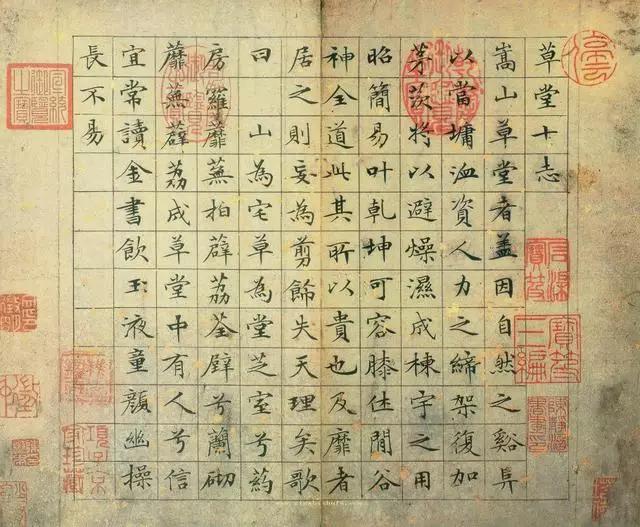 草堂十志
嵩山草堂者盖因自然之谿阜
以當墉洫資人力之締架復加
茅茨將以避燥濕成棟宇之用
昭簡易叶乾坤可容膝休閒谷
神全道此其所以貴也及靡者
居之則妄為剪餙失天理矣歌
曰 山為宅草為堂芝室兮葯
房羅蘼蕪柏薜荔荃壁兮蘭砌
蘼蕪薜荔成草堂中有人兮信
宜常讀金書飲玉液童顏幽操
長不易
石渠寶笈
寶笈三編
項子京家珍藏